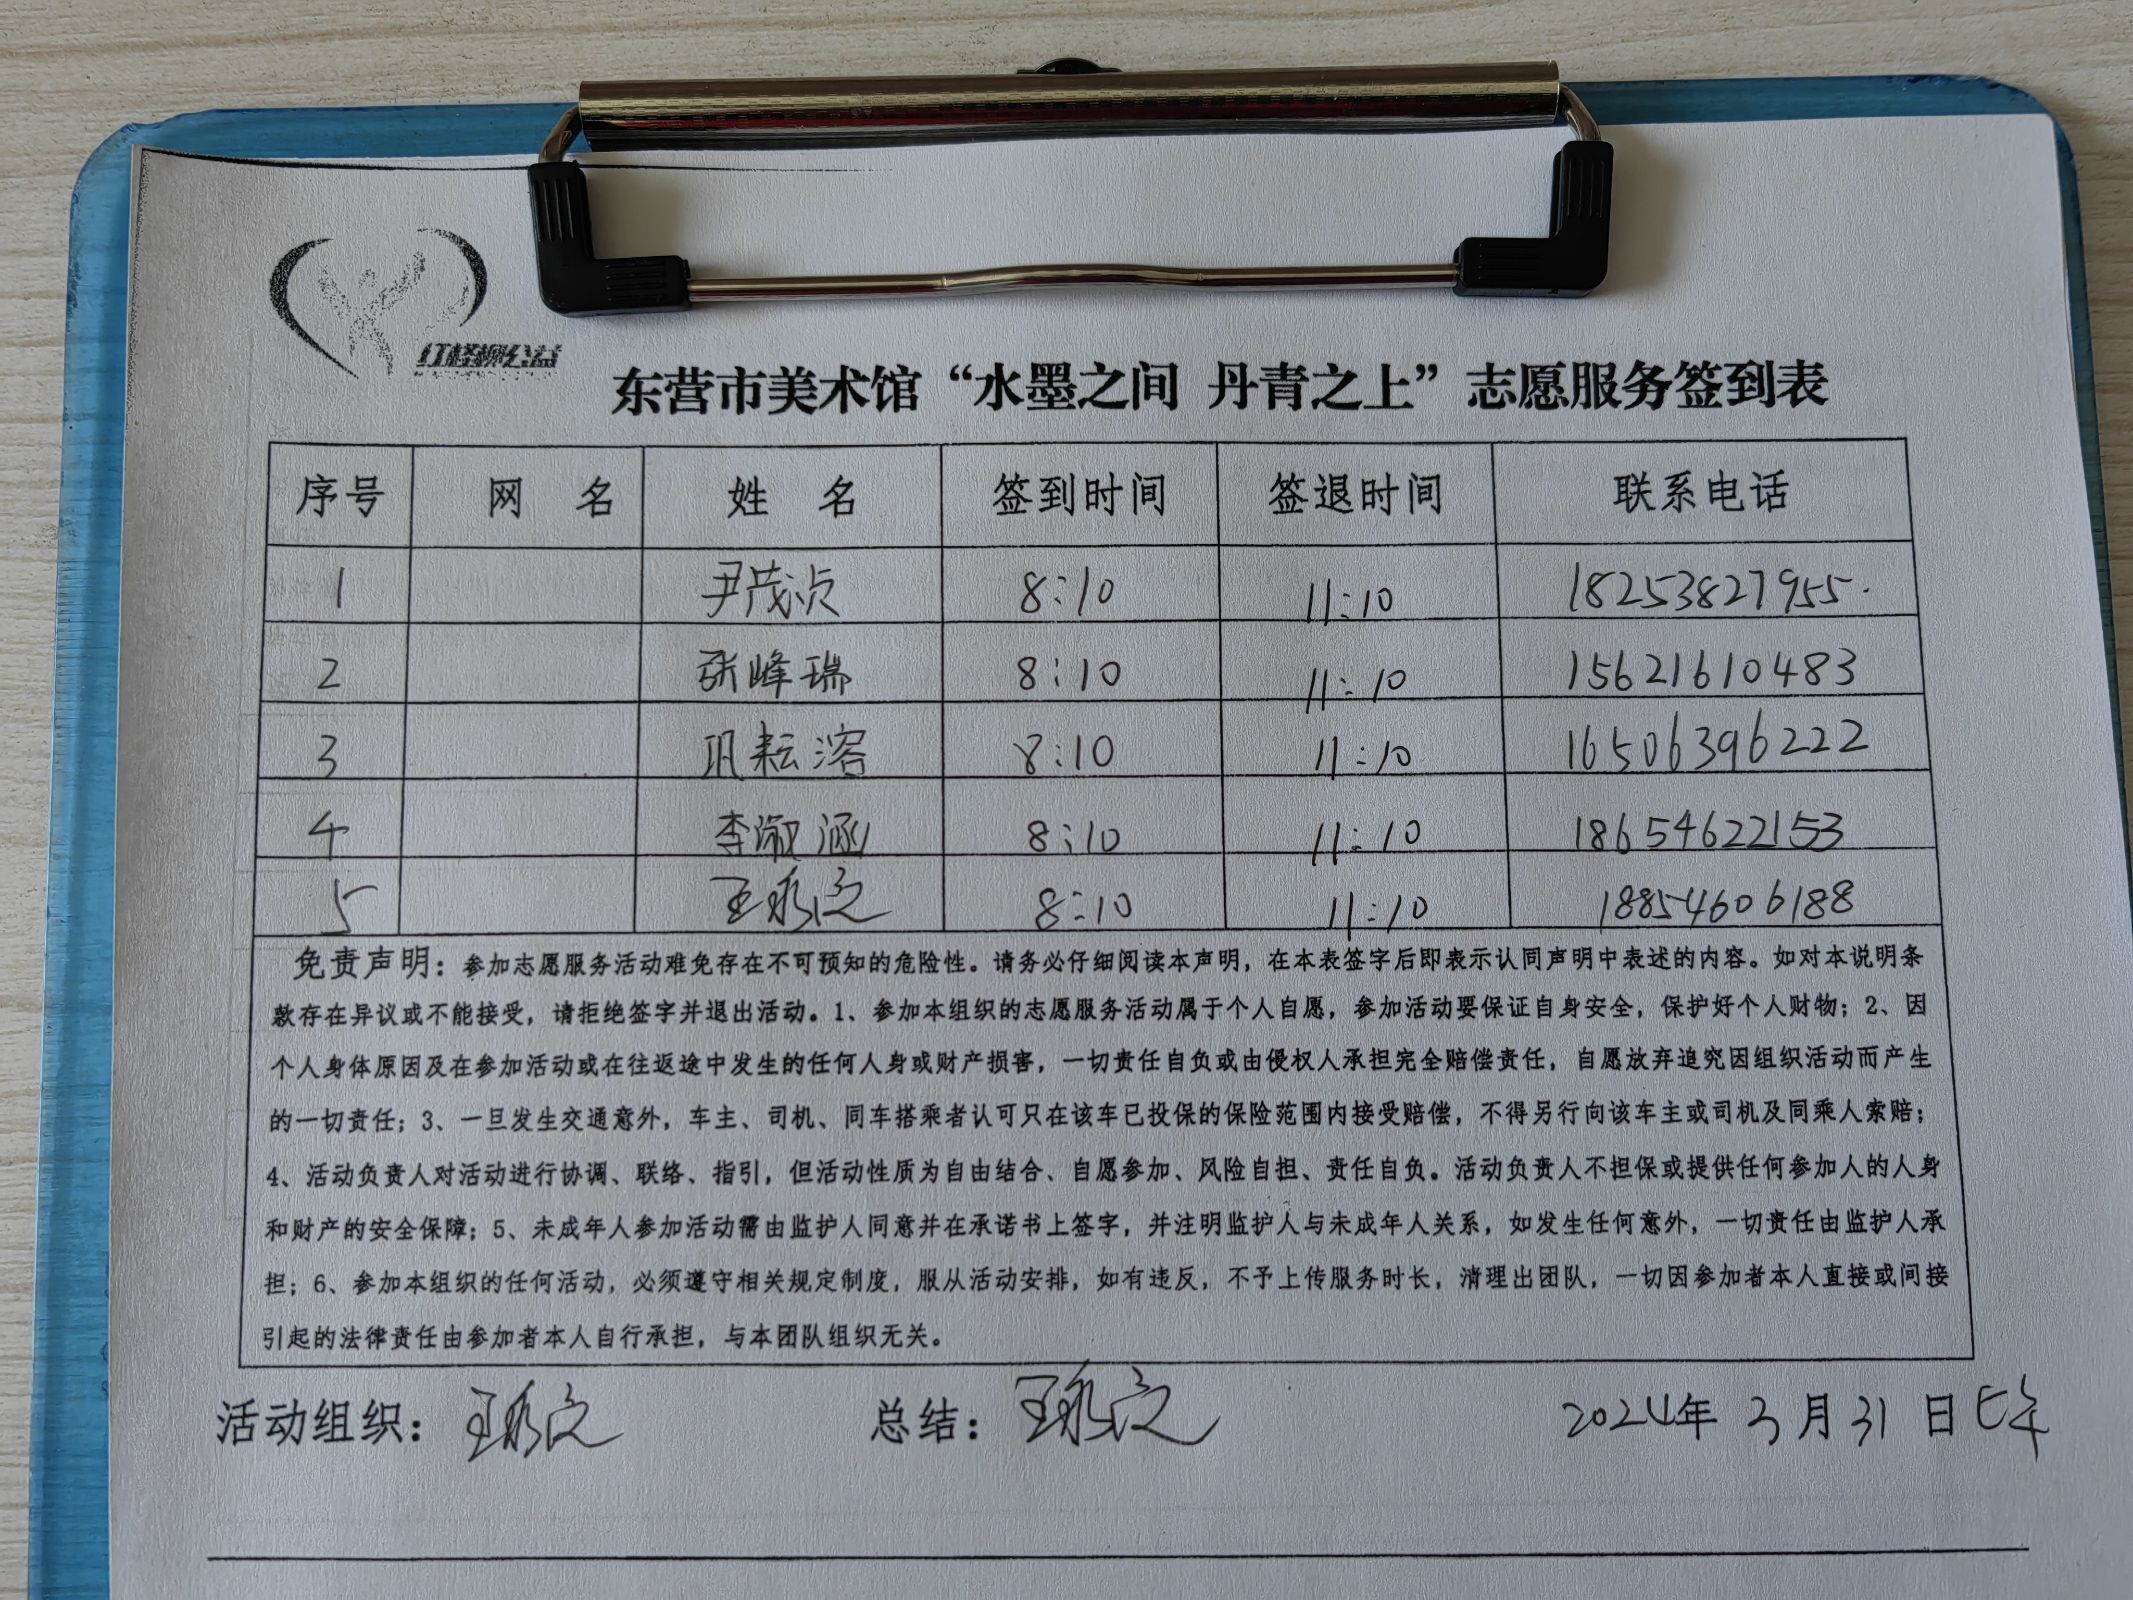 红柽柳公益
东营市美术馆“水墨之间 丹青之上”志愿服务签到表
序号 网 名 姓 名 签到时间 签退时间 联系电话
1 尹茂贞 8:10 11:10 18253827955.
2 张峰瑞 8:10 11:10 15621610483
3 巩耘溶 8:10 11:10 16506396222
4 李淑涵 8:10 11:10 18654622153
5 8:10 11:10 18854606188
免责声明：参加志愿服务活动难免存在不可预知的危险性。请务必仔细阅读本声明，在本表签字后即表示认同声明中表述的内容。如对本说明条
款存在异议或不能接受，请拒绝签字并退出活动。1、参加本组织的志愿服务活动属于个人自愿，参加活动要保证自身安全，保护好个人财物；2、因
个人身体原因及在参加活动或在往返途中发生的任何人身或财产损害，一切责任自负或由侵权人承担完全赔偿责任，自愿放弃追究因组织活动而产生
的一切责任；3、一旦发生交通意外，车主、司机、同车搭乘者认可只在该车已投保的保险范围内接受赔偿，不得另行向该车主或司机及同乘人索赔；
4、活动负责人对活动进行协调、联络、指引，但活动性质为自由结合、自愿参加、风险自担、责任自负。活动负责人不担保或提供任何参加人的人身
和财产的安全保障；5、未成年人参加活动需由监护人同意并在承诺书上签字，并注明监护人与未成年人关系，如发生任何意外，一切责任由监护人承
担；6、参加本组织的任何活动，必须遵守相关规定制度，服从活动安排，如有违反，不予上传服务时长，清理出团队，一切因参加者本人直接或间接
引起的法律责任由参加者本人自行承担，与本团队组织无关。
活动组织： 总结： 2024年 3月31日上午